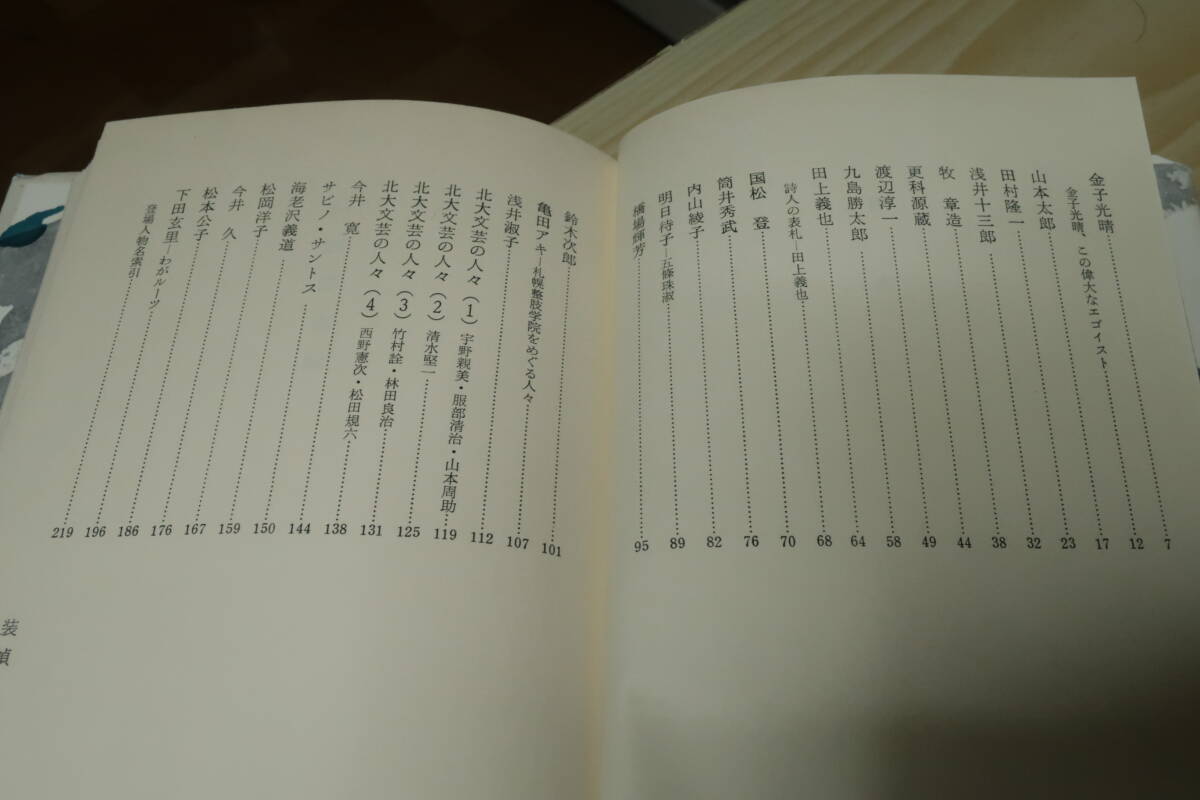 金子光晴……7
金子光晴、この偉大なエゴイスト……12
山本太郎……17
田村隆一……23
浅井十三郎……32
牧　章造……38
更科源蔵……44
渡辺淳一……49
九島勝太郎……58
田上義也……64
詩人の表札―田上義也……68
国松　登……70
筒井秀武……76
内山綾子……82
明日待子―五條珠淑……89
橋場輝芳……95
鈴木次郎……101
亀田アキ―札幌整肢学院をめぐる人々……107
浅井淑子……112
北大文芸の人々（1）宇野親美・服部清治・山本周助……119
北大文芸の人々（2）清水堅一……125
北大文芸の人々（3）竹村詮・林田良治……131
北大文芸の人々（4）西野憲次・松田規六……138
今井　寛……144
サビノ・サントス……150
海老沢義道……159
松岡洋子……167
今井　久……176
松本公子……186
下田玄里―わがルーツ……196
登場人物名索引……219
装幀